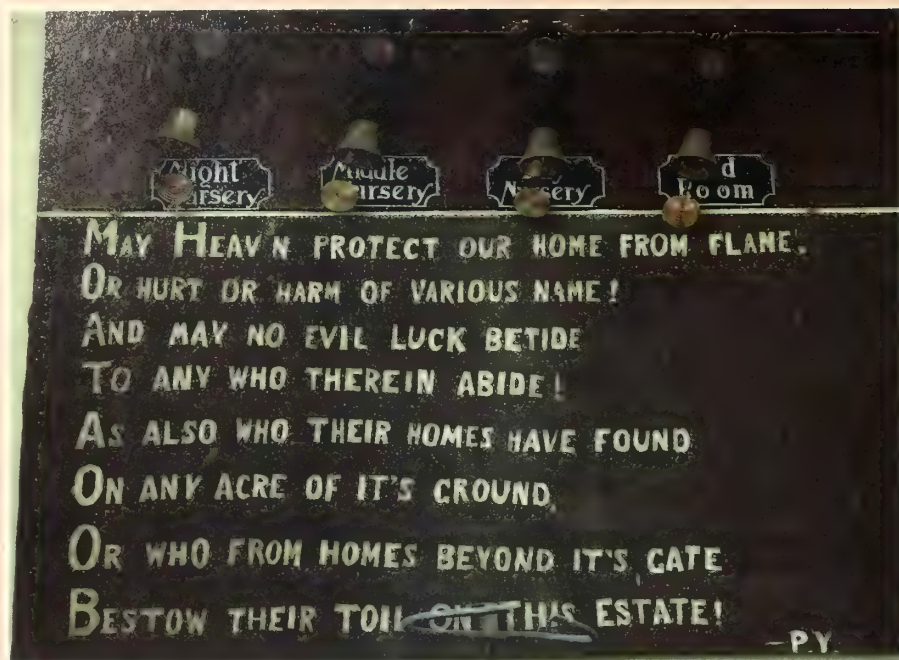 Night Nursery
Middle Nursery
Nursery
Room
MAY HEAV'N PROTECT OUR HOME FROM FLAME.
OR HURT OR HARM OF VARIOUS NAME!
AND MAY NO EVIL LUCK BETIDE
TO ANY WHO THEREIN ABIDE!
AS ALSO WHO THEIR HOMES HAVE FOUND
ON ANY ACRE OF IT'S GROUND,
OR WHO FROM HOMES BEYOND IT'S GATE
BESTOW THEIR TOIL ON THIS ESTATE!
—P.Y.